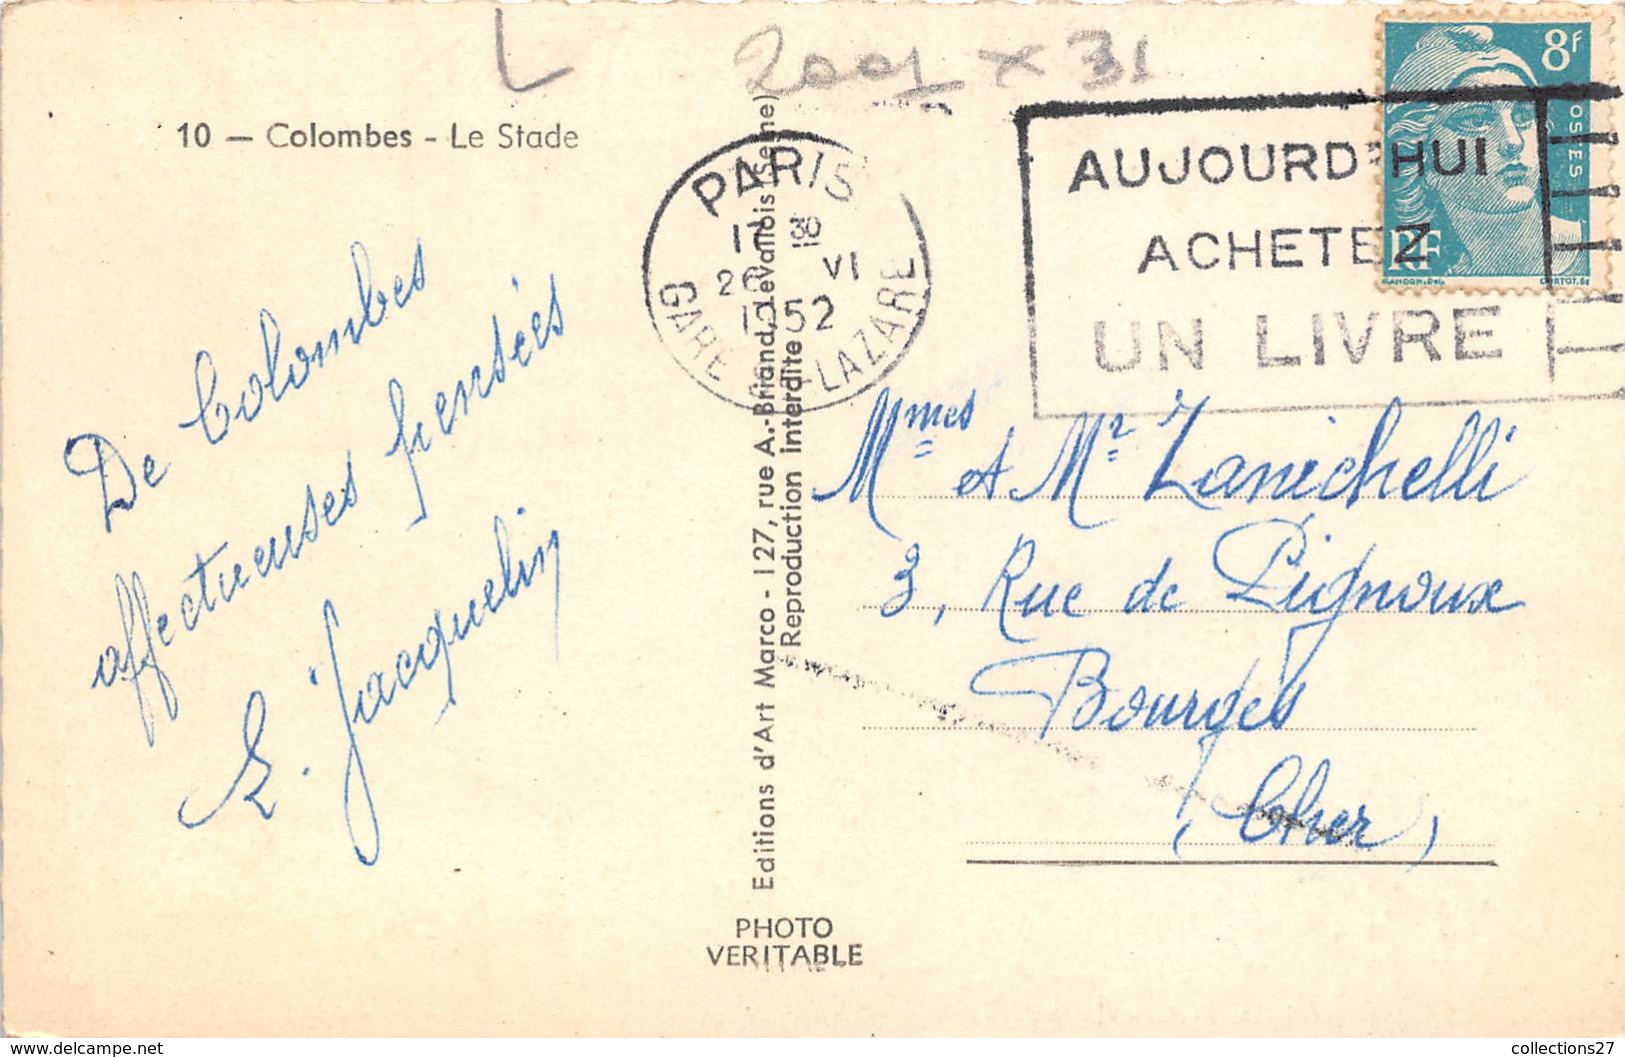 L
2001 x 31
10 — Colombes - Le Stade
De Colombes
affectueuses pensées
E. Jacquelin
Editions d'Art Marco - 127, rue A.-Briand, Levallois (Seine)
Reproduction interdite
PHOTO
VERITABLE
PARIS
VI
52
GARE LAZARE
AUJOURD'HUI
ACHETEZ
UN LIVRE
8f
POSTES
RF
GANDON.DEL CORTOT.SC
Mmes et Mr Zanichelli
3, Rue de Pignoux
Bourges
(Cher)
collections27